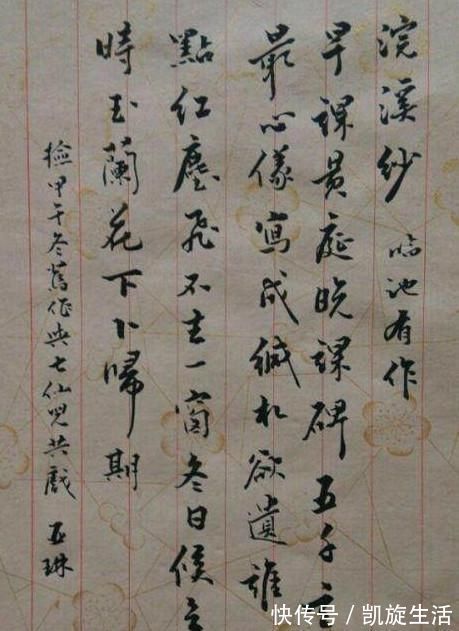 浣溪紗 临池有作
早課黃庭晚課碑五千言
最心儀寫成緘札欲遺誰
點紅塵飛不至一窗冬日候多
時玉蘭花下卜歸期
檢甲午冬舊作與七仙兒共戲 琳
快传号/凯旋生活